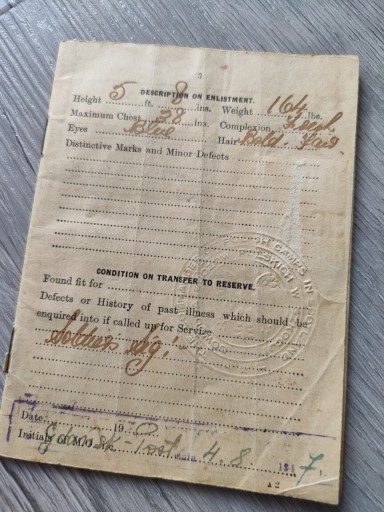 3
DESCRIPTION ON ENLISTMENT.
Height 5 ft. 8 ins. Weight 164 lbs.
Maximum Chest 38 ins. Complexion Fresh
Eyes Blue Hair Bald. Fair.
Distinctive Marks and Minor Defects
CONDITION ON TRANSFER TO RESERVE.
Found fit for
Defects or History of past illness which should be
enquired into if called up for Service
Soldiers Sig:
Date 19
Initials of M.O. i/c 4.8. 7.
A 2